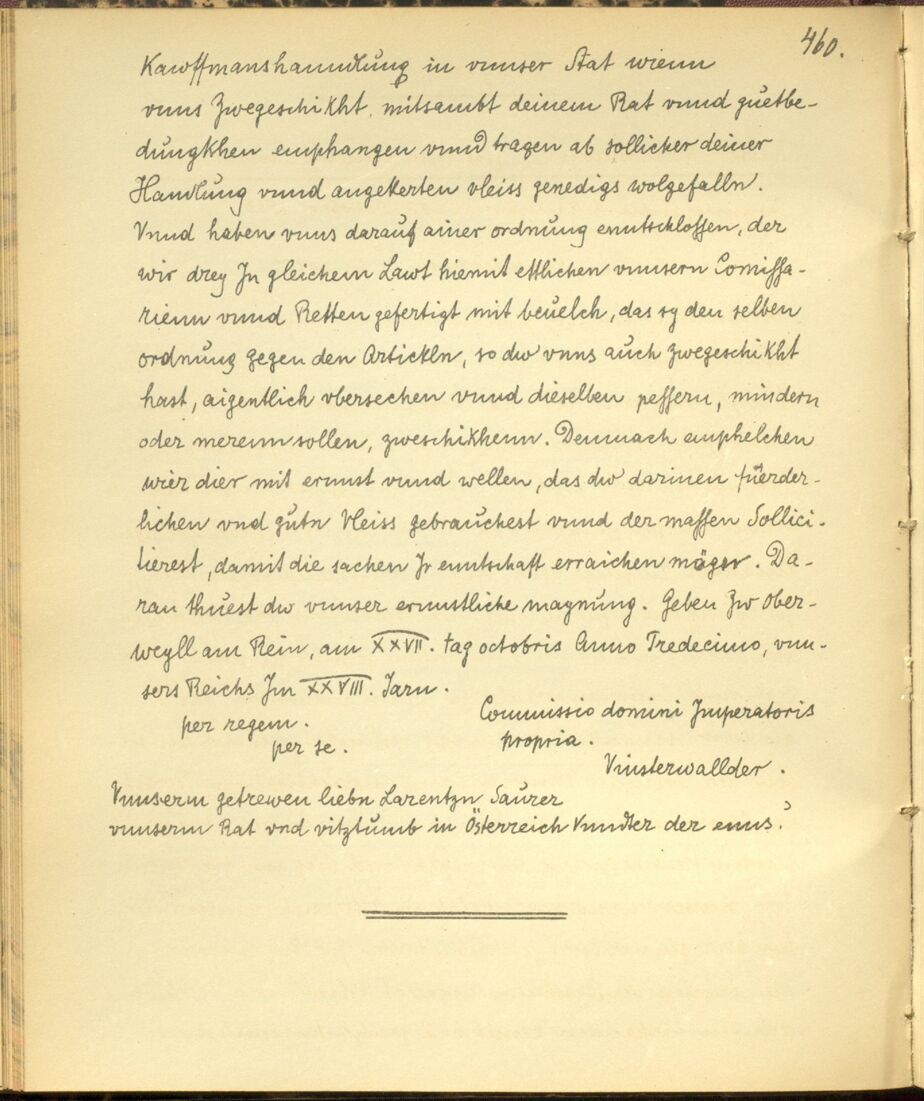 460.
Kawffmanshanndlung in vnnser Stat wienn
vnns Zwegeschikht, mitsambt deinem Rat vnnd guetbe-
dungkhen emphangen vnnd tragen ab sollicher deiner
Handlung vnnd angekerten vleiss genedigs wolgefalln.
Vnnd haben vnns darauf ainer ordnung enntschlossen, der
wir drey Jn gleichem Lawt hiemit ettlichen vnnsern Comissa-
rienn vnnd Retten gefertigt mit beuelch, das sy den selben
ordnung gegen den Artickln, so dw vnns auch zwegeschikht
hast, aigentlich vbersechen vnnd dieselben pessern, mindern
oder merenn sollen, zweschikhenn. Demnach emphelchen
wier dier mit ernnst vnnd wellen, das dw darinen fürder-
lichen vnd gutn Vleiss gebrauchest vnnd der massen Sollici-
tierest, damit die sachen Jr enntschaft erraichen möger. Da-
ran thuest dw vnnser ernnstliche maynung. Geben Zw Ober-
weyll am Rein, am XXVII. tag octobris Anno Tredecimo, vnn-
sers Reichs Jm XXVIII. Jarn.
per regem.
per se.
Commissio domini Jmperatoris
propria.
Vinsterwallder.
Vnnserm getrewen liebn Larentzn Saurer
vnnserm Rat vnd vitztumb in Österreich Vnndter der enns.